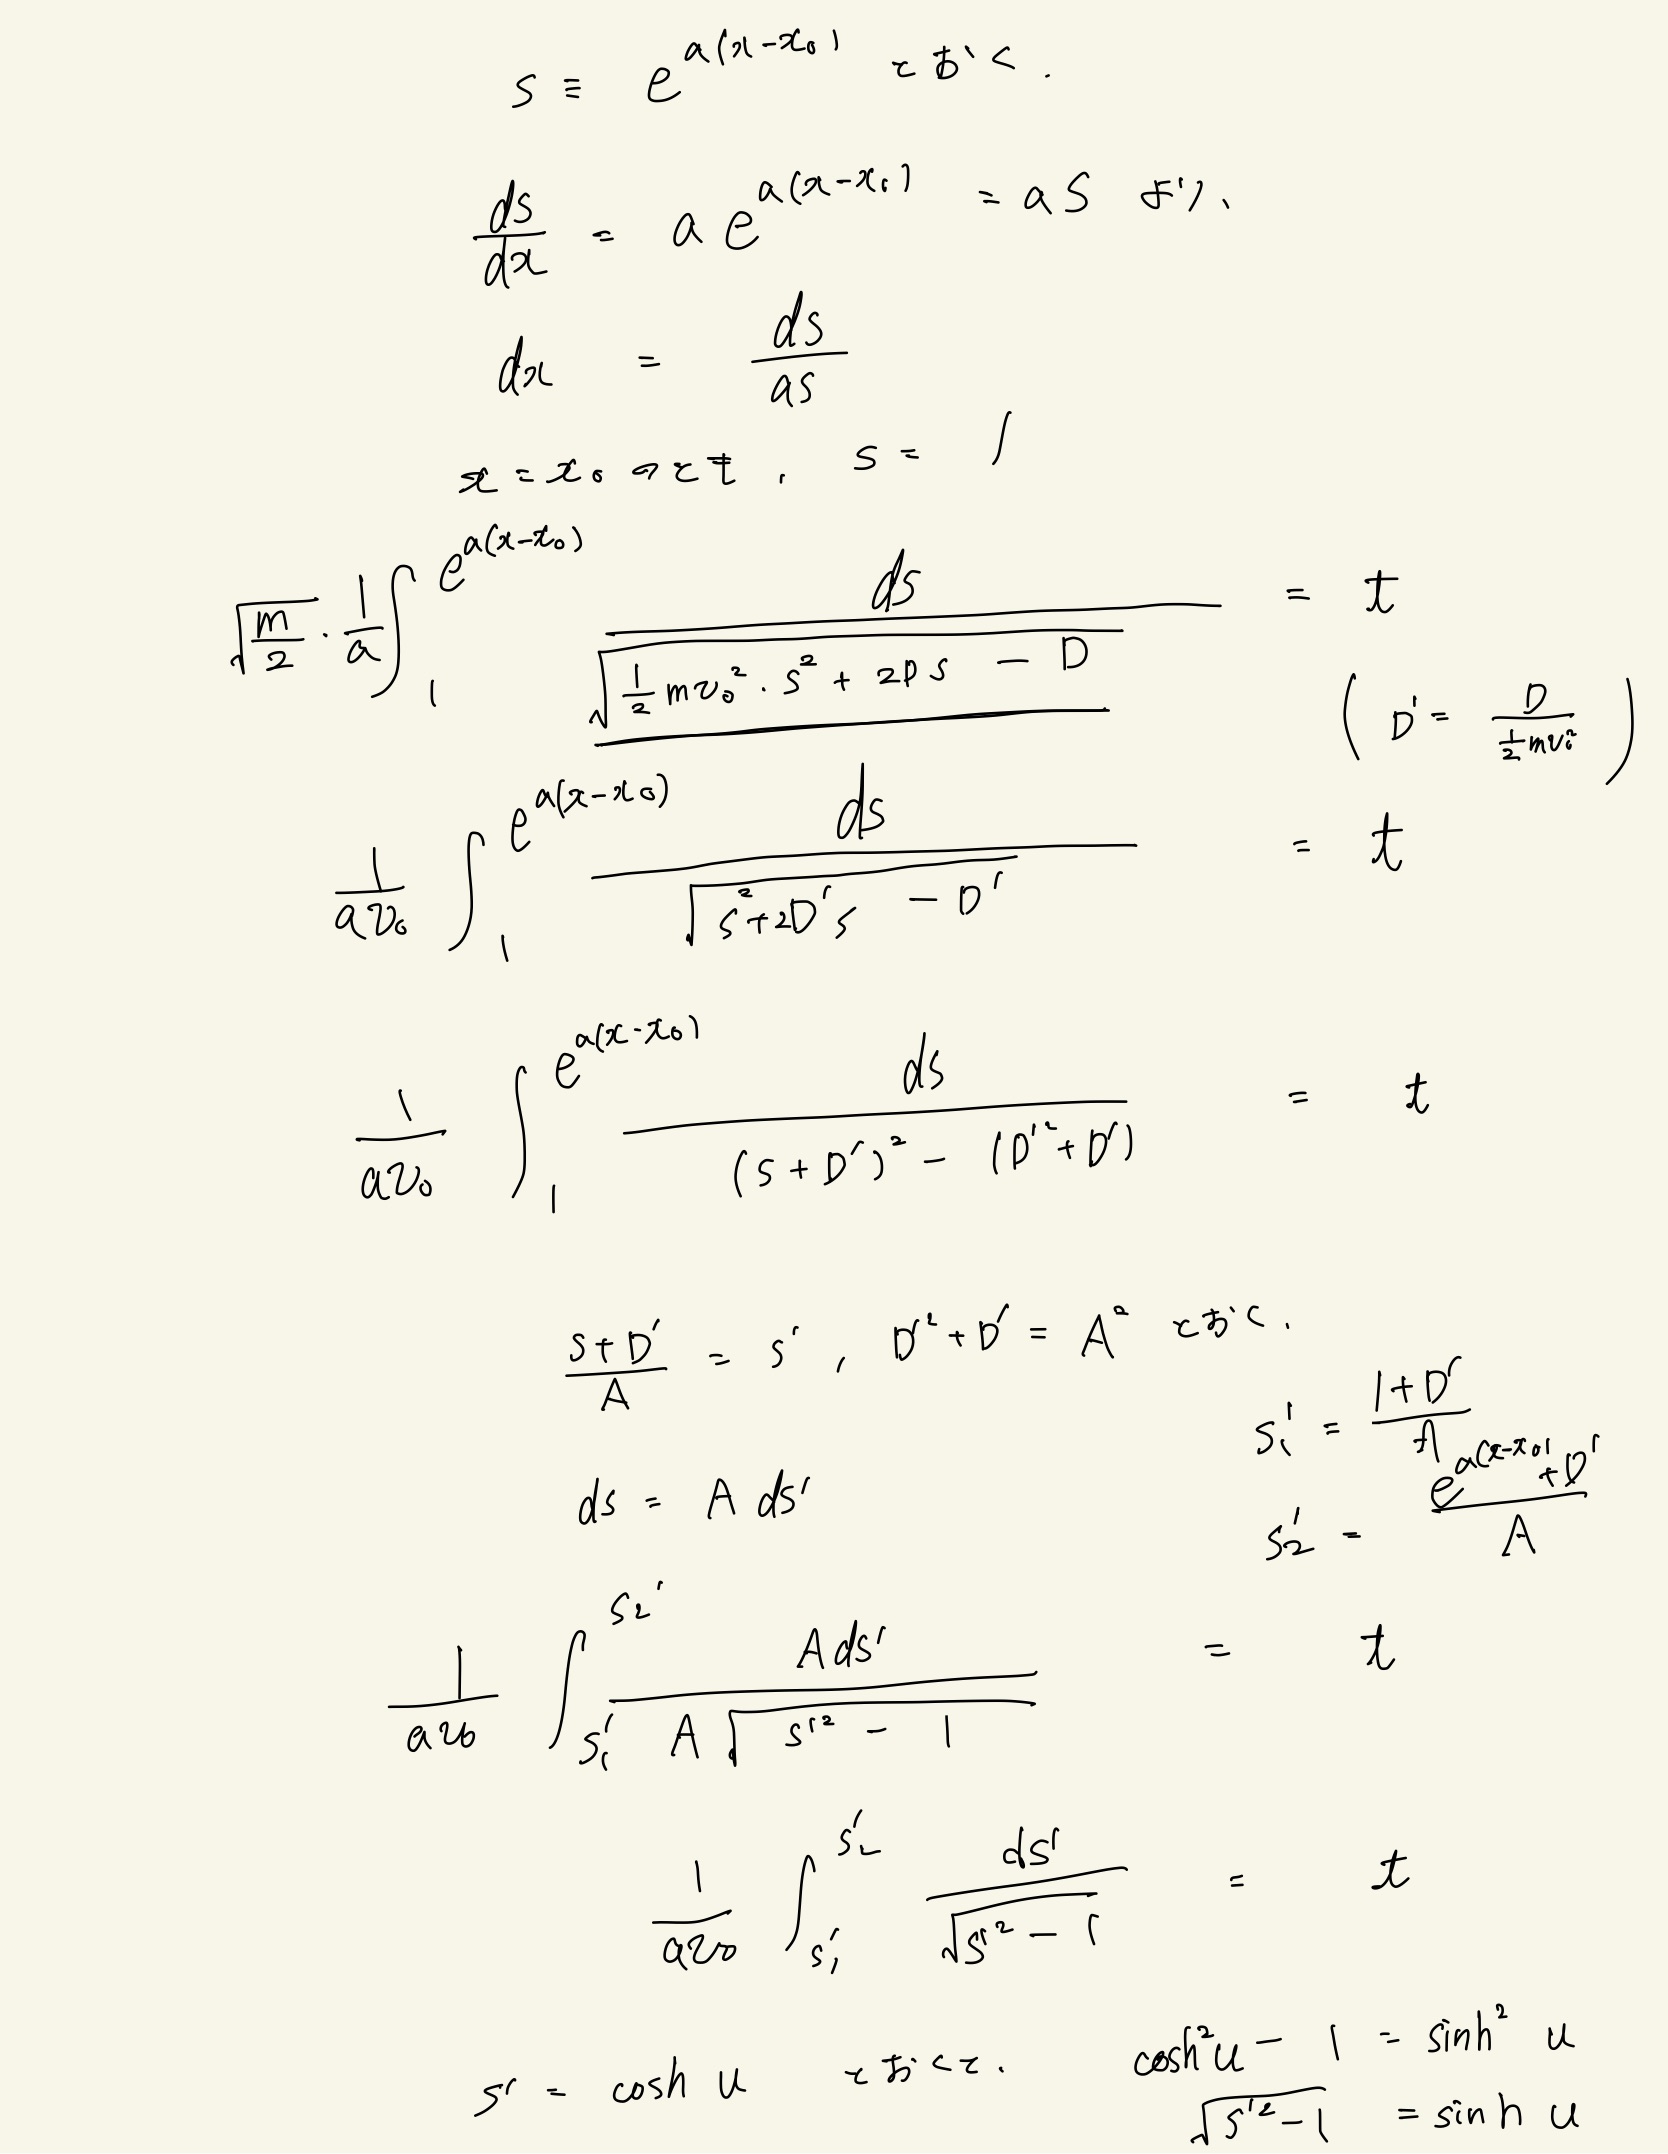 s ≡ e^{a(x-x₀)} とおく.
ds/dx = a e^{a(x-x₀)} = as より、
dx = ds/as
x = x₀ のとき, s = 1
√(m/2) · 1/a ∫_1^{e^{a(x-x₀)}} ds/√(½mv₀²·s² + 2Ds − D) = t
( D' = D/(½mv₀²) )
1/(av₀) ∫_1^{e^{a(x-x₀)}} ds/√(s²+2D's − D') = t
1/(av₀) ∫_1^{e^{a(x-x₀)}} ds/((s+D')² − (D'²+D')) = t
(s+D')/A = s', D'²+D' = A² とおく.
s₁' = (1+D')/A
ds = A ds'
s₂' = (e^{a(x-x₀)}+D')/A
1/(av₀) ∫_{s₁'}^{s₂'} A ds'/(A√(s'² − 1)) = t
1/(av₀) ∫_{s₁'}^{s₂'} ds'/√(s'² − 1) = t
s' = cosh u とおくと. cosh²u − 1 = sinh² u
√(s'²−1) = sinh u